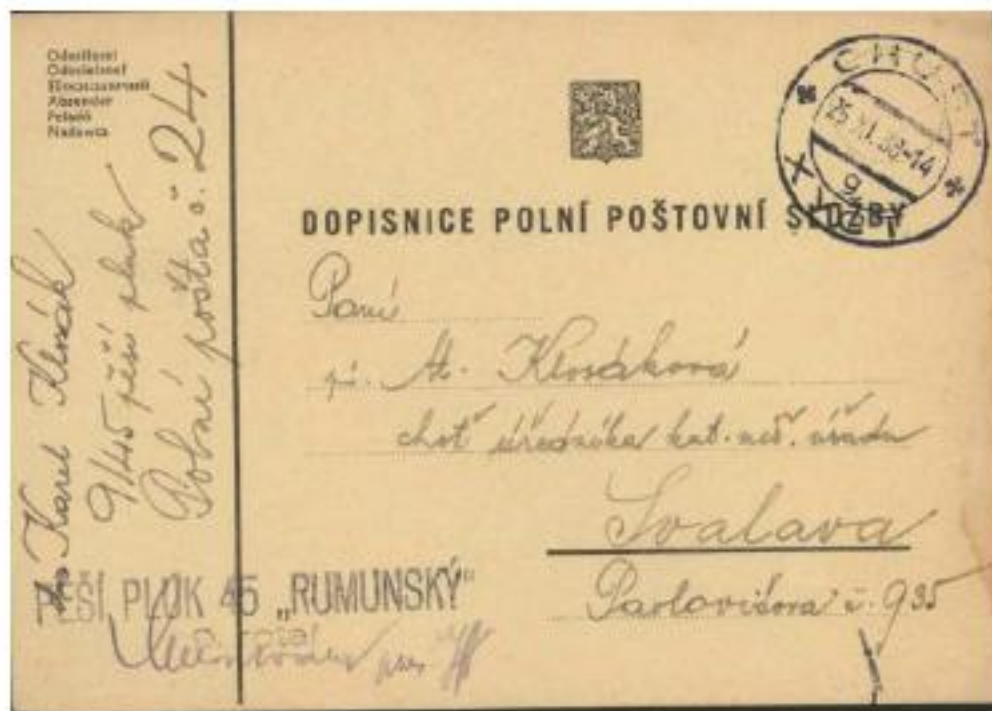 Odesílatel
Odosielateľ
Absender
Feladó
Nadawca
Karel Klozák
9/45 pěší pluk
Polní pošta č. 24
CHUST
25.XI.38-14
g
DOPISNICE POLNÍ POŠTOVNÍ SLUŽBY
Paní
pí. A. Klozáková
choť úředníka kat. úřadu
Svalava
č. 935
PĚŠÍ PLUK 45 „RUMUNSKÝ"